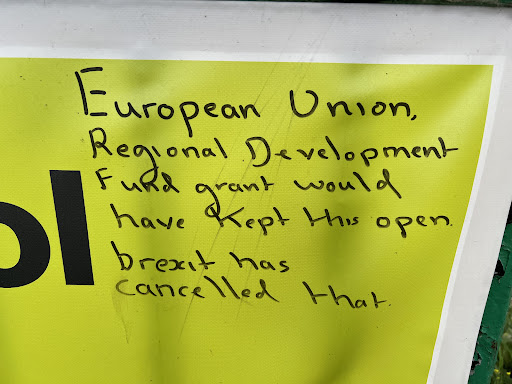 European Union,
Regional Development
Fund grant would
have Kept this open.
brexit has
cancelled that.
ol